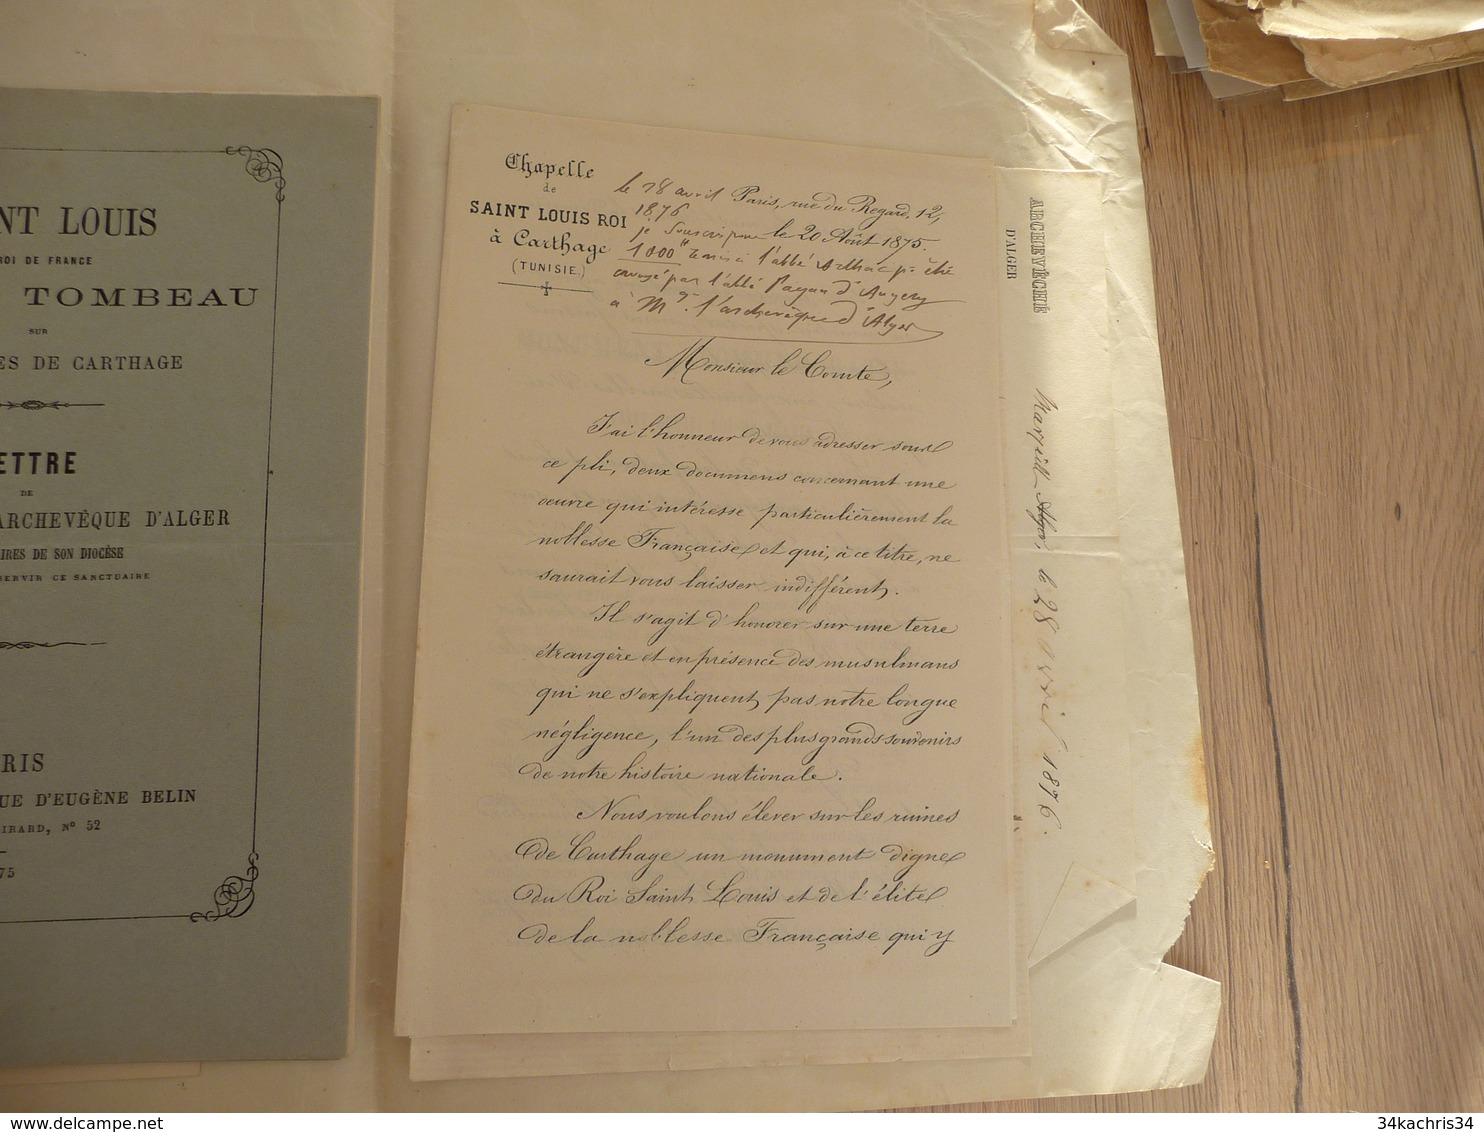 NT LOUIS
ROI DE FRANCE
TOMBEAU
SUR
ES DE CARTHAGE
ETTRE
DE
ARCHEVÊQUE D'ALGER
AIRES DE SON DIOCÈSE
SERVIR CE SANCTUAIRE
RIS
UE D'EUGÈNE BELIN
IRARD, Nº 52
75
Chapelle
de
SAINT LOUIS ROI
à Carthage
(TUNISIE.)
Paris, rue du Regard, 12,
le 20 Août 1875.
le 28 avril
1876
je souscris pour
1000 remis à l'abbé pr être
envoyé par l'abbé Payan d'Augery
à Mgr. l'archevêque d'Alger
Monsieur le Comte,
J'ai l'honneur de vous adresser sous
ce pli, deux documens concernant une
œuvre qui intéresse particulièrement la
noblesse Française et qui, à ce titre, ne
saurait vous laisser indifférent.
Il s'agit d'honorer sur une terre
étrangère et en présence des musulmans
qui ne s'expliquent pas notre longue
négligence, l'un des plus grands souvenirs
de notre histoire nationale.
Nous voulons élever sur les ruines
de Carthage un monument digne
du Roi Saint Louis et de l'élite
de la noblesse Française qui y
ARCHEVÊCHÉ
D'ALGER
Alger, le 28 avril 1876.
34kachris34